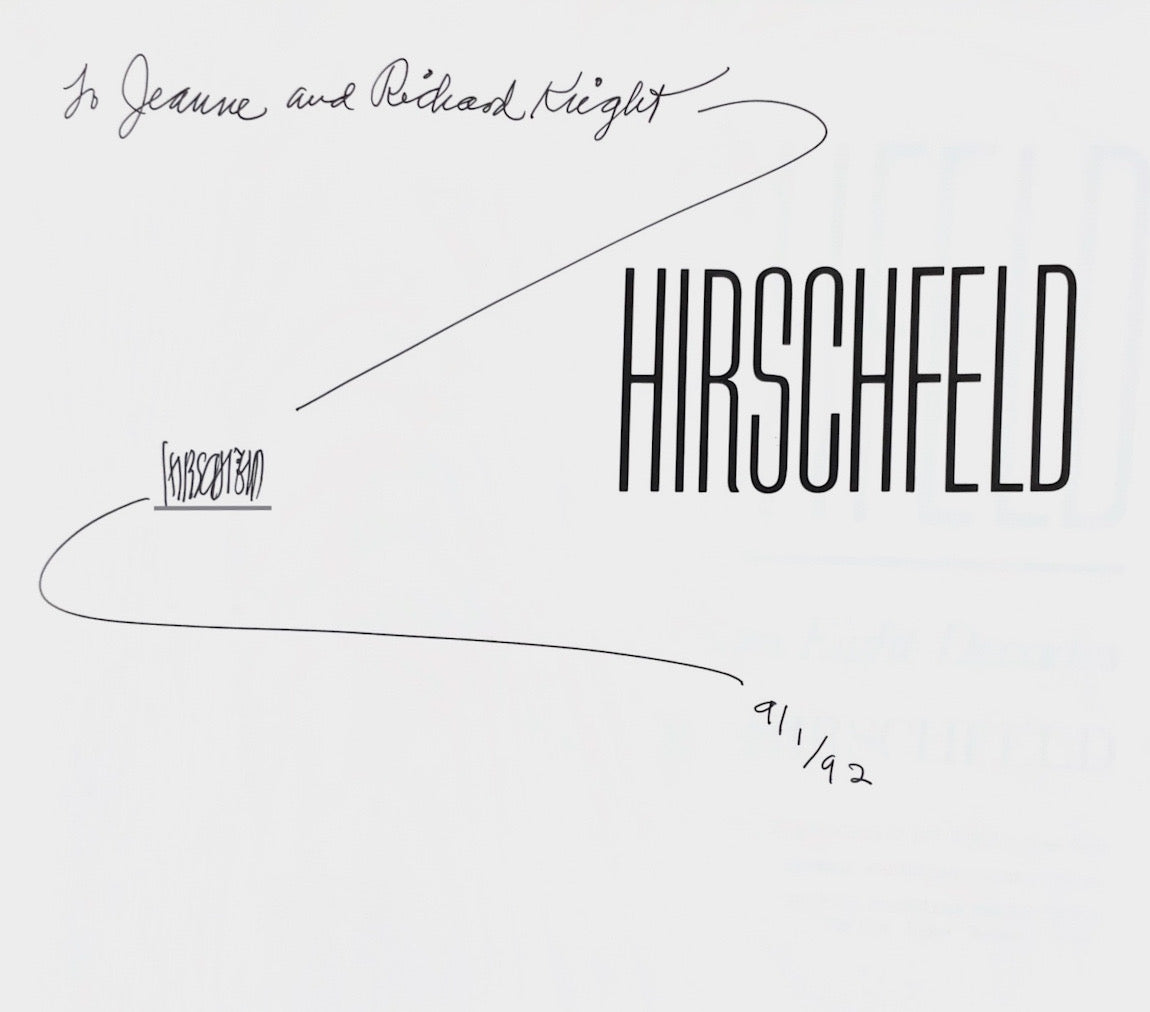 To Jeanne and Richard Knight
HIRSCHFELD
HIRSCHFELD
9/1/92